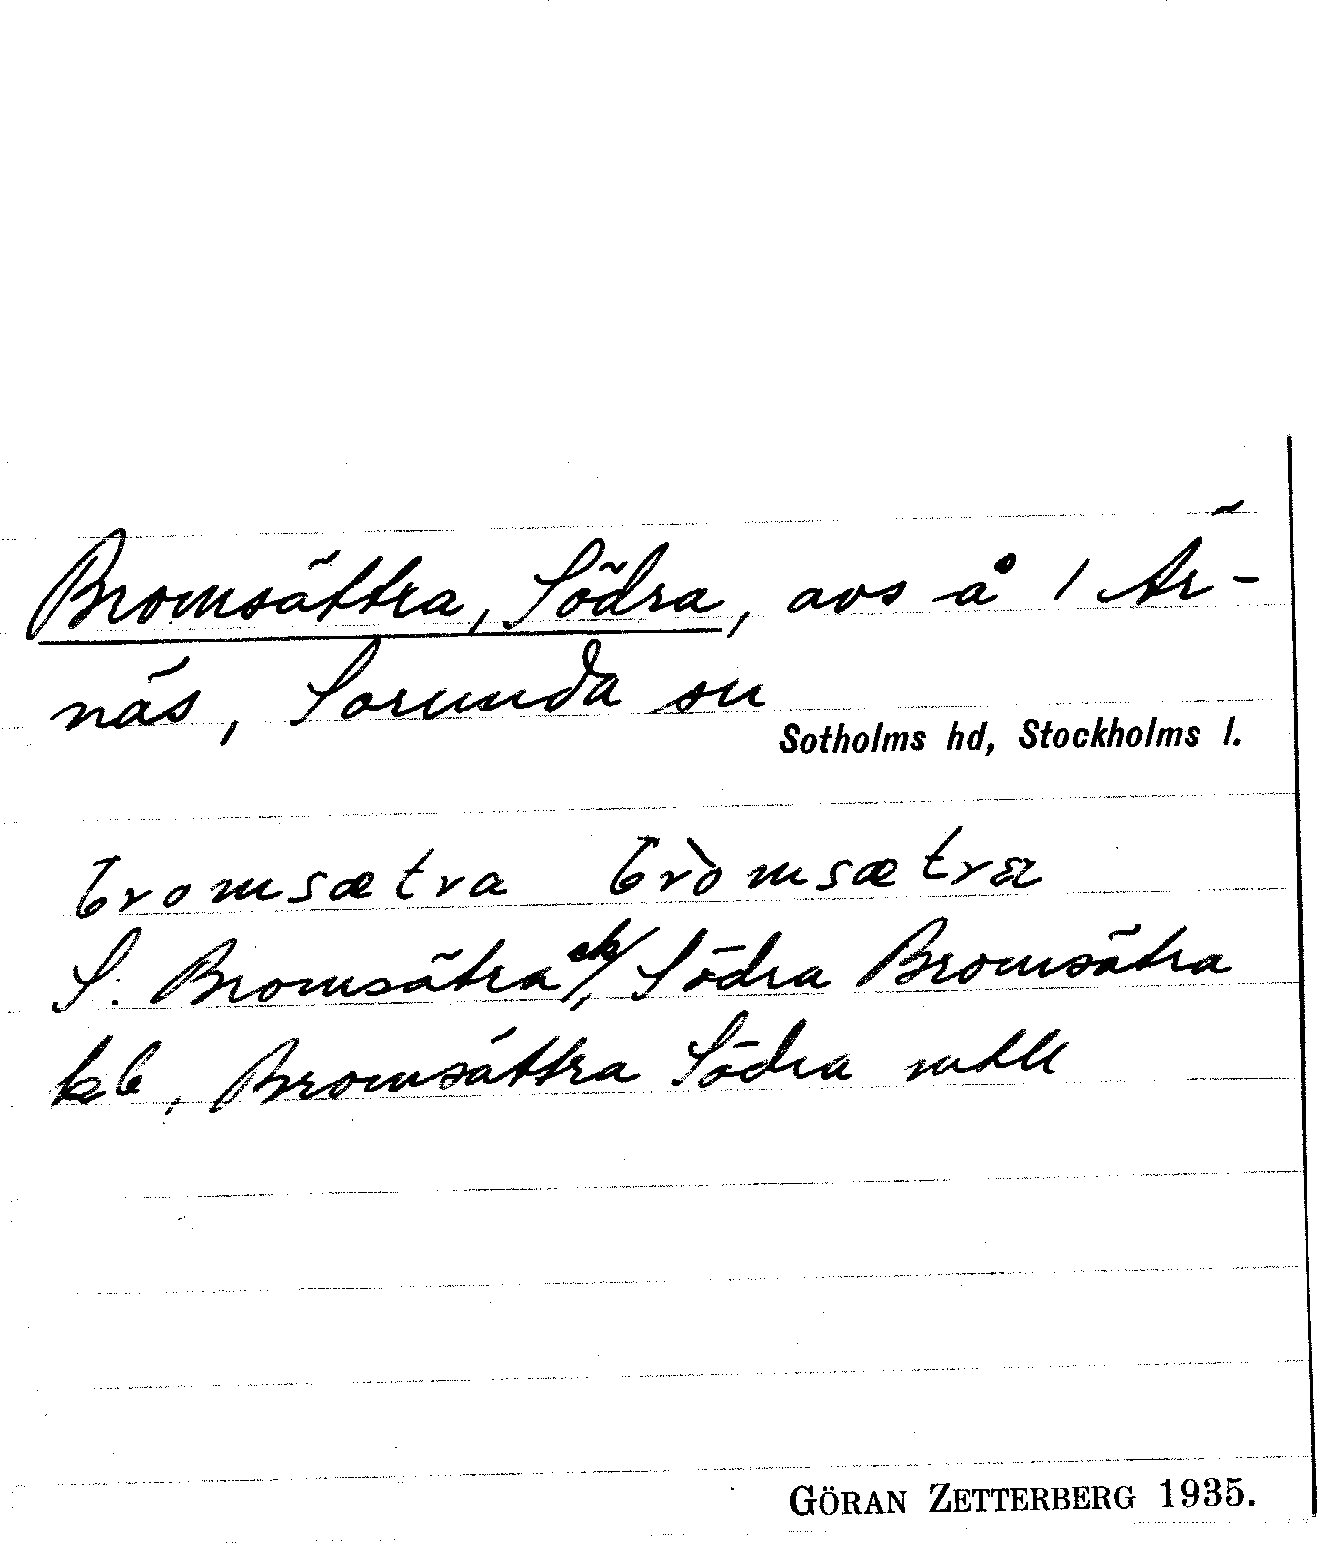 Bromsättra, Södra, avs å 1 Är-
näs, Sorunda sn
Sotholms hd, Stockholms l.
bromsætra bròmsætra
S. Bromsätra ek, Södra Bromsätra
kb, Bromsättra Södra mtll
GÖRAN ZETTERBERG 1935.